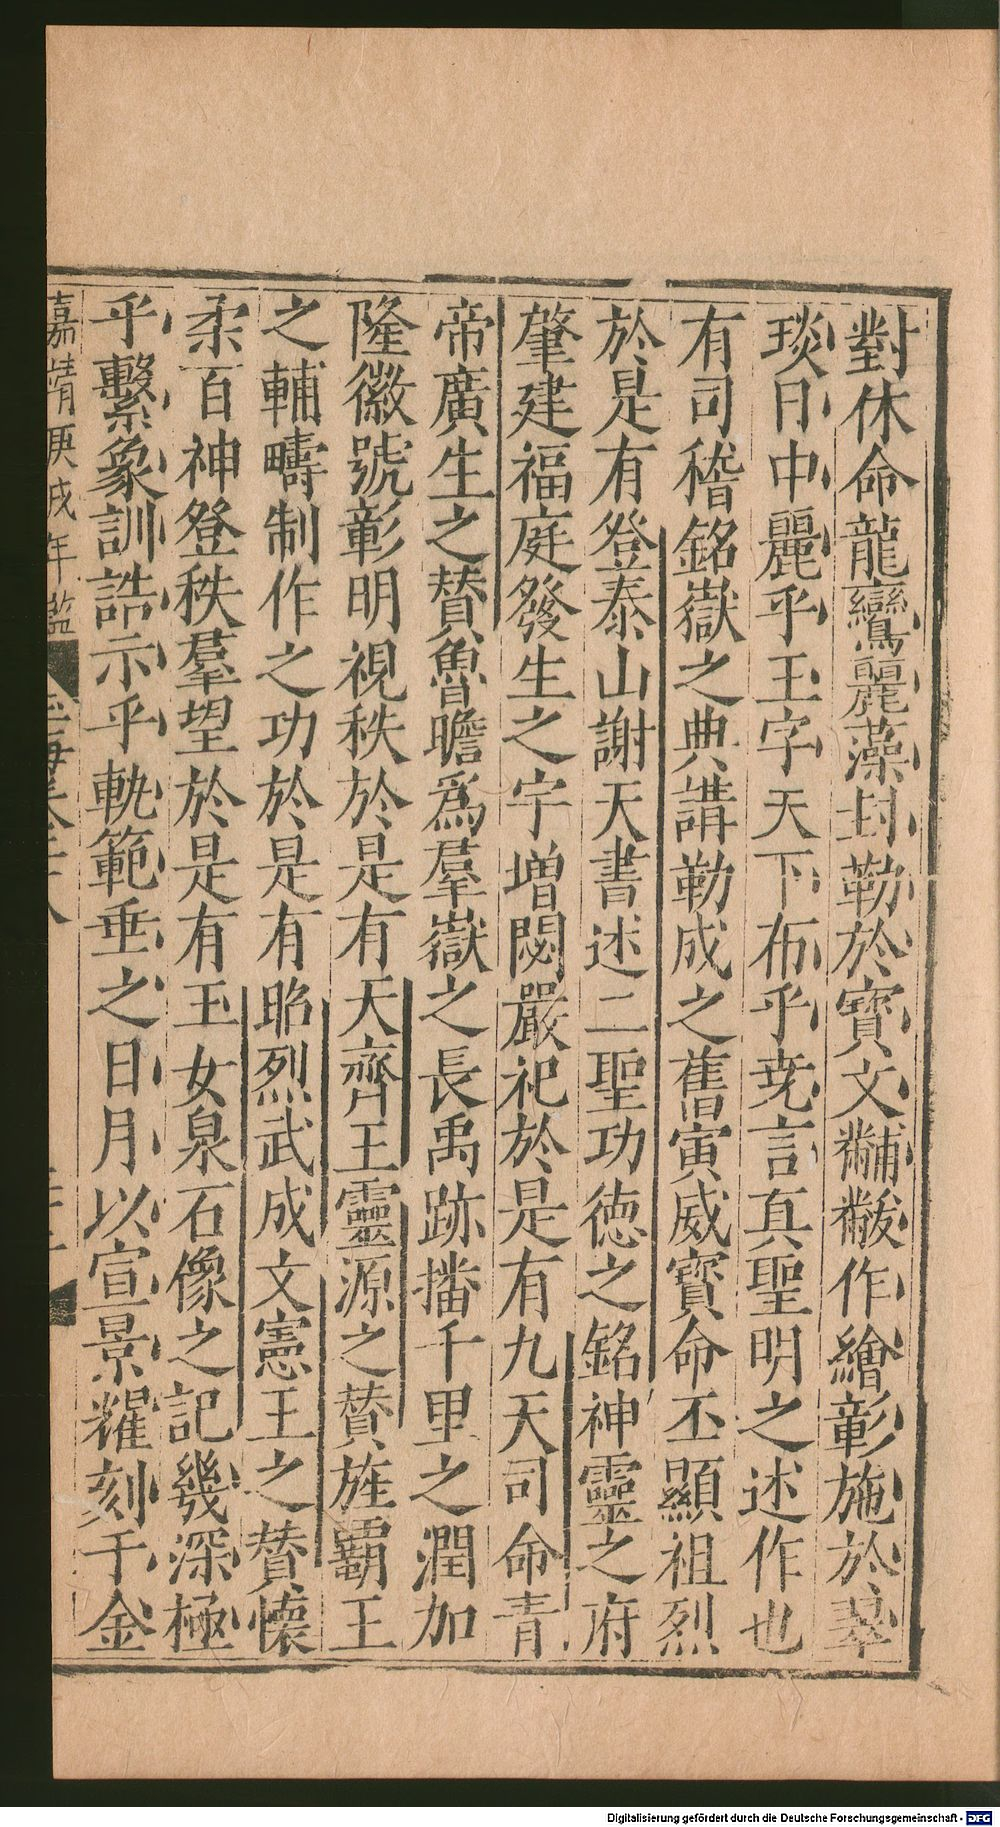 對休命龍鸞麗藻封勒於寶文黼黻作繪彰施於翠
琰日中麗乎王字天下布乎尭言真聖明之述作也
有司稽銘嶽之典講勒成之舊寅威寶命丕顯祖烈
於是有登泰山謝天書述二聖功德之銘神靈之府
肇建福庭發生之宇增閟嚴祀於是有九天司命青
帝廣生之賛魯瞻爲羣嶽之長禹跡播千里之潤加
隆徽號彰明視秩於是有天齊王靈源之賛旌覇王
之輔疇制作之功於是有昭烈武成文憲王之賛懷
柔百神登秩羣望於是有玉女泉石像之記幾深極
乎繫象訓誥示乎軌範垂之日月以宣景耀刻于金
嘉靖庚戌年監
Digitalisierung gefördert durch die Deutsche Forschungsgemeinschaft - DFG